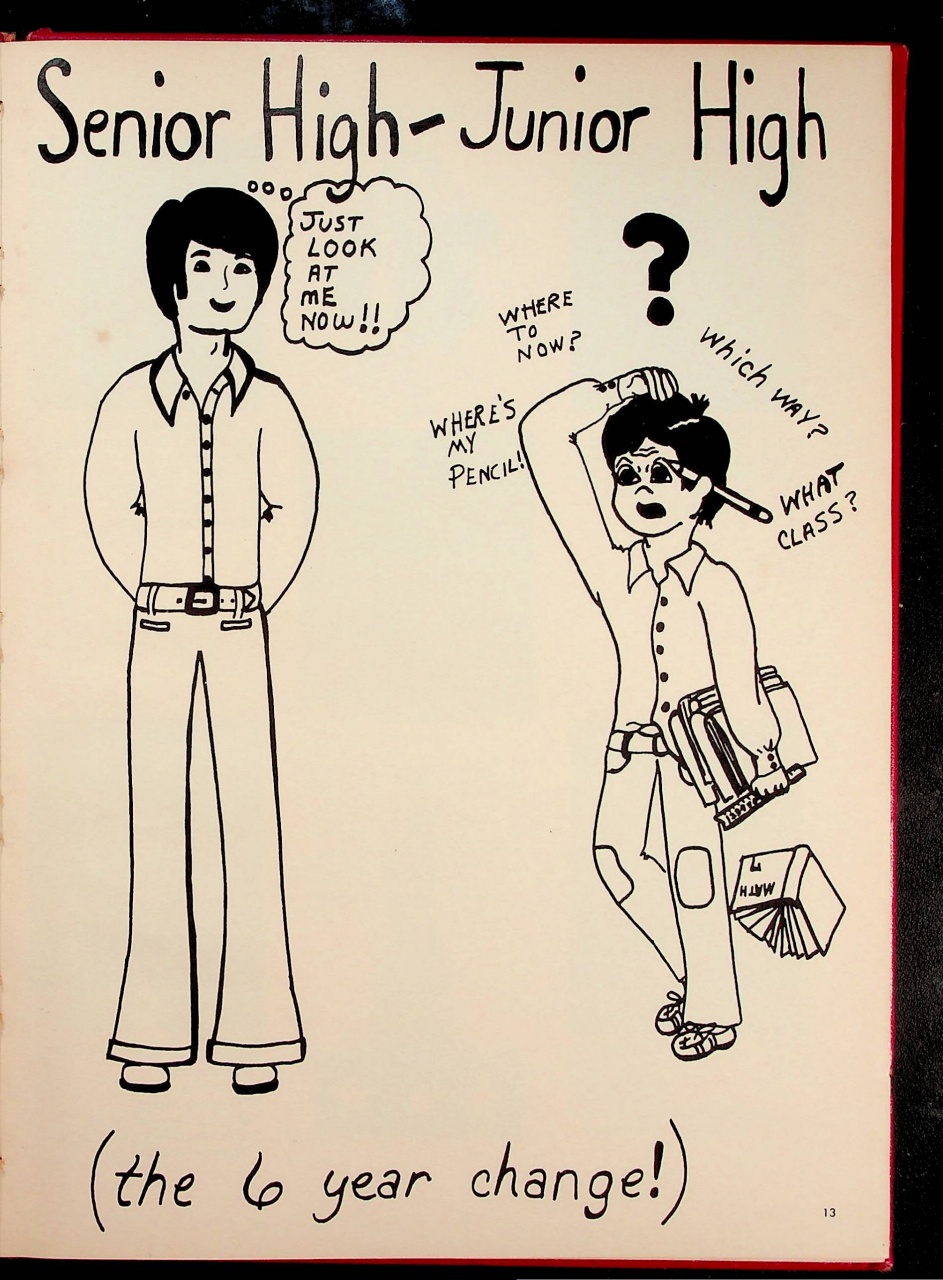 Senior High - Junior High
JUST
LOOK
AT
ME
NOW!!
?
WHERE
TO
NOW?
Which WAY?
WHERE'S
MY
PENCIL!
WHAT
CLASS?
MATH
7
(the 6 year change!)
13